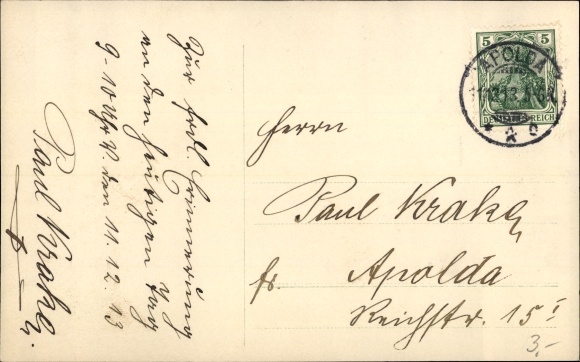 Zur frdl. Erinnerung
an den heutigen Tag
9-10 Uhr V. den 11.12.13
Paul Krake
5 5
APOLDA
DEUTSCHES REICH
Herrn
Paul Krake
fr. Apolda
Reichstr. 15 I
3,-